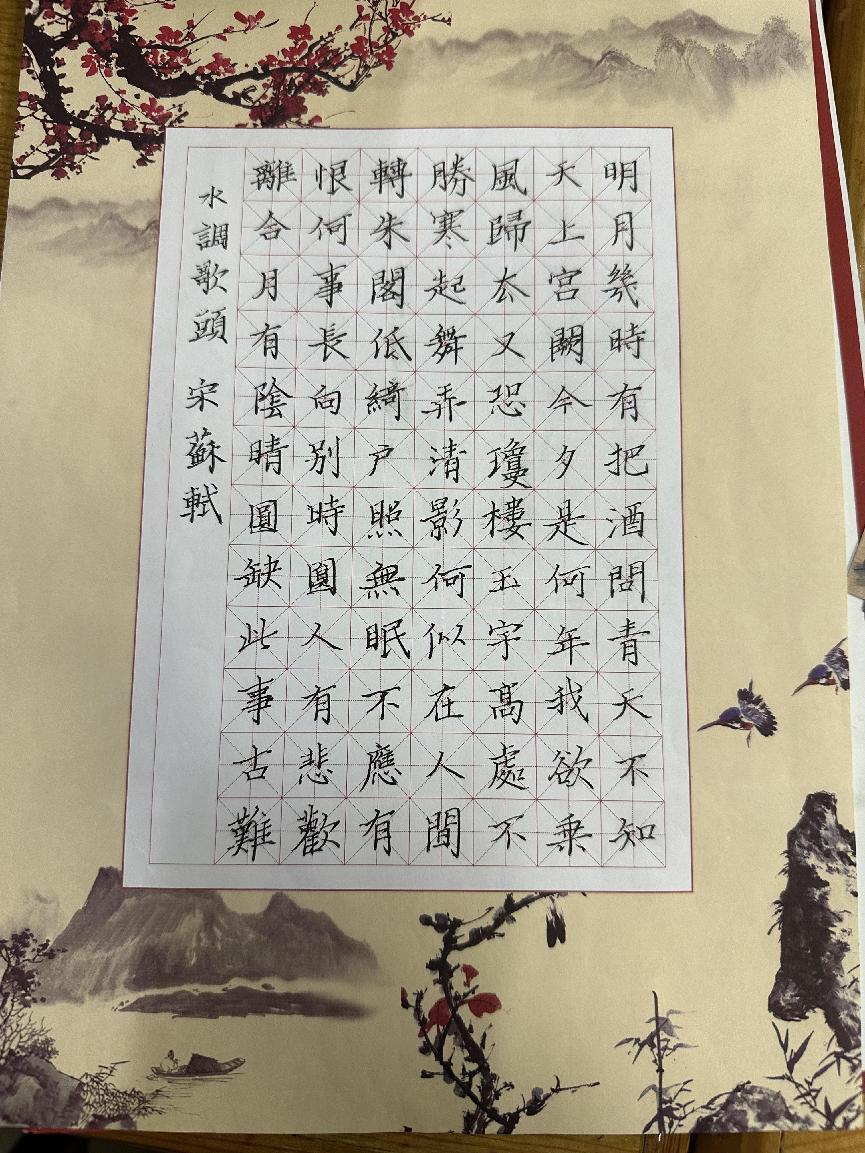 明月幾時有把酒問青天不知
天上宫闕今夕是何年我欲乗
風歸去又恐瓊樓玉宇髙處不
勝寒起舞弄清影何似在人間
轉朱閣低綺户照無眠不應有
恨何事長向别時圓人有悲歡
離合月有陰晴圓缺此事古難
水調歌頭 宋蘇軾